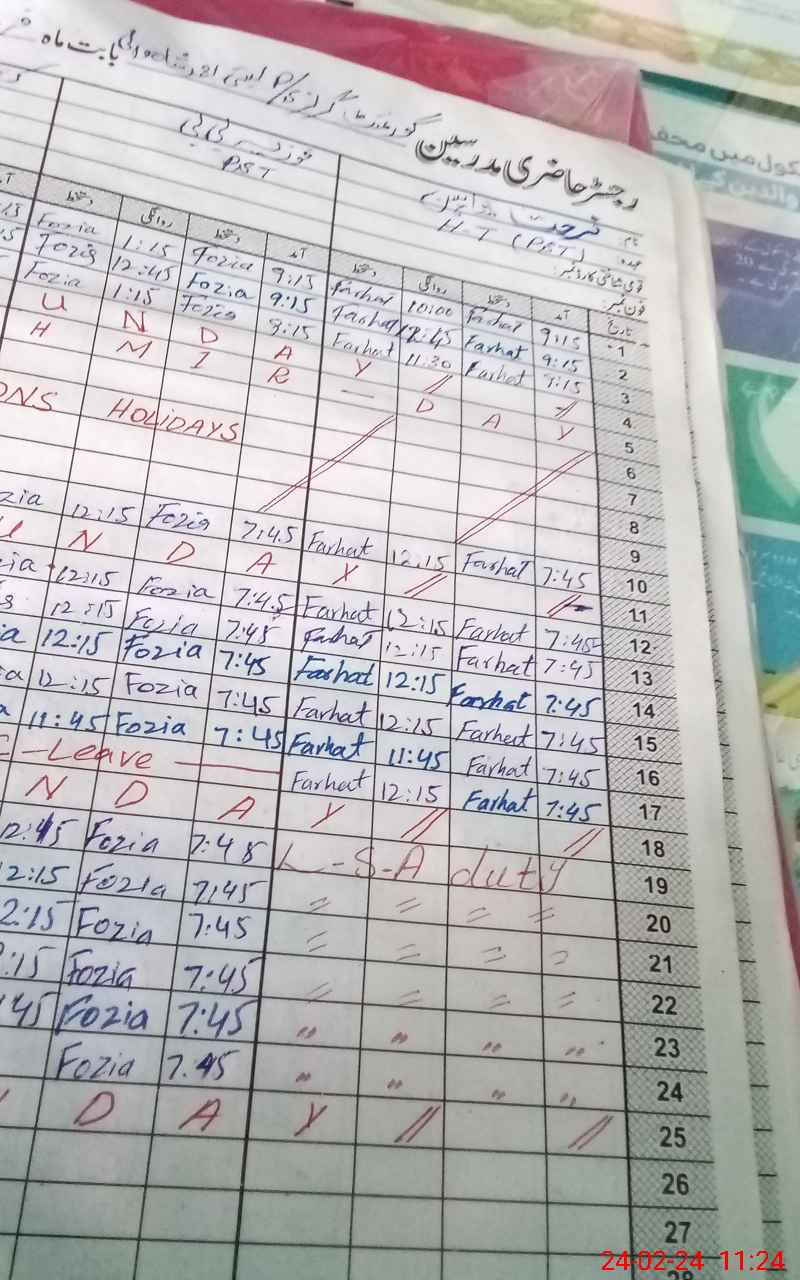 رجسٹر حاضری مدرسین گورنمنٹ گرلز P/S بابت ماہ
نام : فرحت
عہدہ : H-T (PST)
فوزیہ بی بی
PST
قومی شناختی کارڈ نمبر :
فون نمبر :
تاریخ آمد دستخط روانگی دستخط آمد دستخط روانگی دستخط
1 9:15 Farhat 10:00 Farhat 9:15 Fozia 1:15 Fozia
2 9:15 Farhat 12:45 Farhat 9:15 Fozia 12:45 Fozia
3 9:15 Farhat 11:30 Farhat 9:15 Fozia 1:15 Fozia
4 // // Y A D N U
5 Y A D — R I M H
6
7 ONS HOLIDAYS
8
9 7:45 Farhat 12:15 Farhat 7:45 Fozia 12:15 zia
10 // // Y A D N U
11 7:45 Farhat 12:15 Farhat 7:45 Fozia 12:15 zia
12 7:45 Farhat 12:15 Farhat 7:45 Fozia 12:15
13 7:45 Farhat 12:15 Farhat 7:45 Fozia 12:15 a
14 7:45 Farhat 12:15 Farhat 7:45 Fozia 12:15 a
15 7:45 Farhat 11:45 Farhat 7:45 Fozia 11:45 a
16 7:45 Farhat 12:15 Farhat C-Leave
17 // // Y A D N
18 L-S-A duty 7:45 Fozia 12:45
19 = = = = 7:45 Fozia 2:15
20 = = = 7:45 Fozia 2:15
21 = = = = 7:45 Fozia :15
22 " " " " 7:45 Fozia 45
23 " " " " 7.45 Fozia
24 // // Y A D
25
26
27
28
سکول میں
والدین
24-02-24 11:24